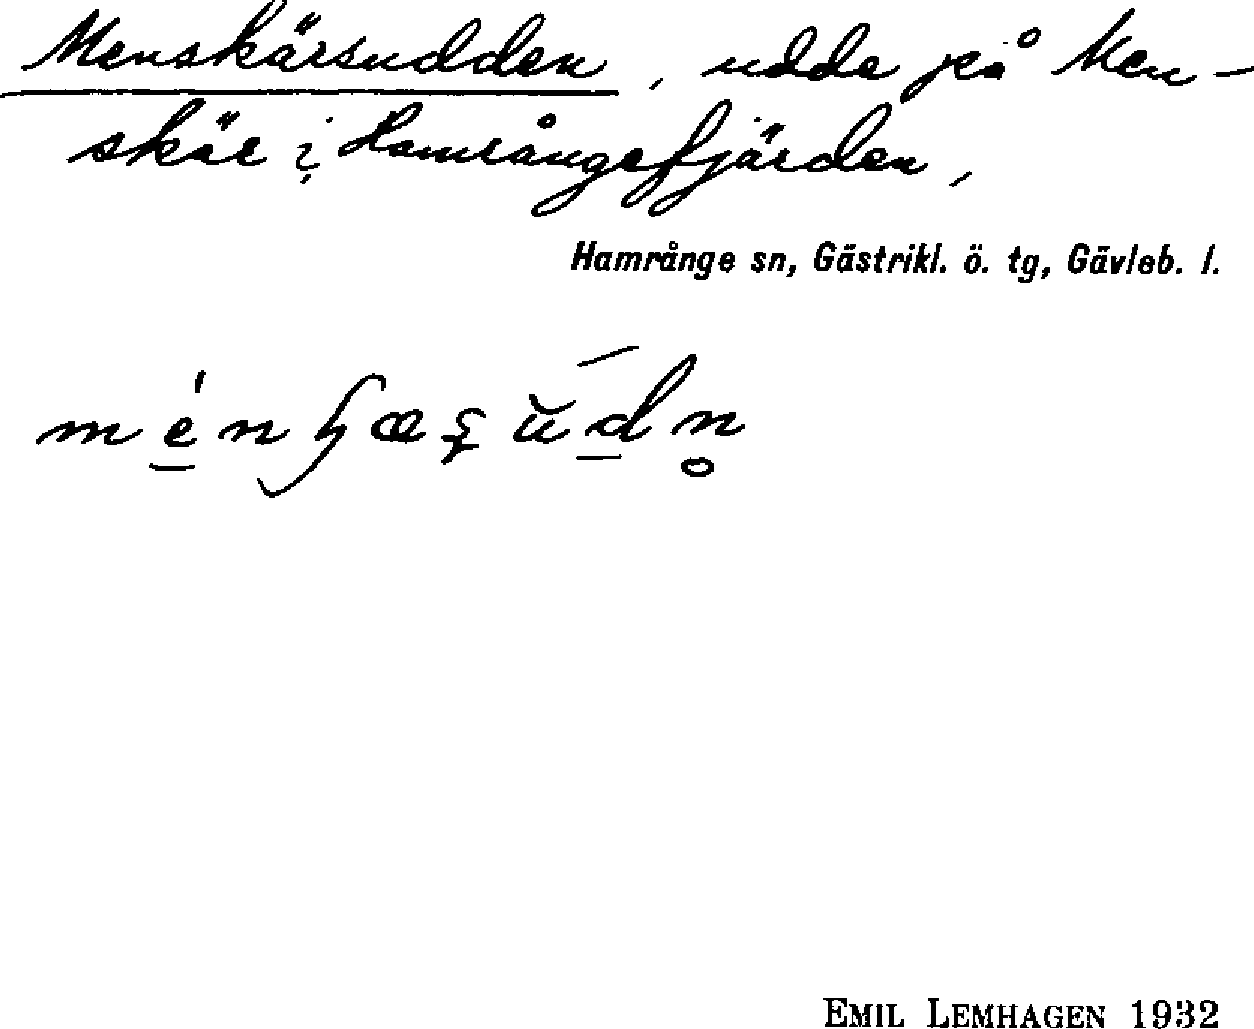 Menskärsudden, udde på Men-
skär i Hamrångefjärden,
Hamrånge sn, Gästrikl. ö. tg, Gävleb. l.
EMIL LEMHAGEN 1932